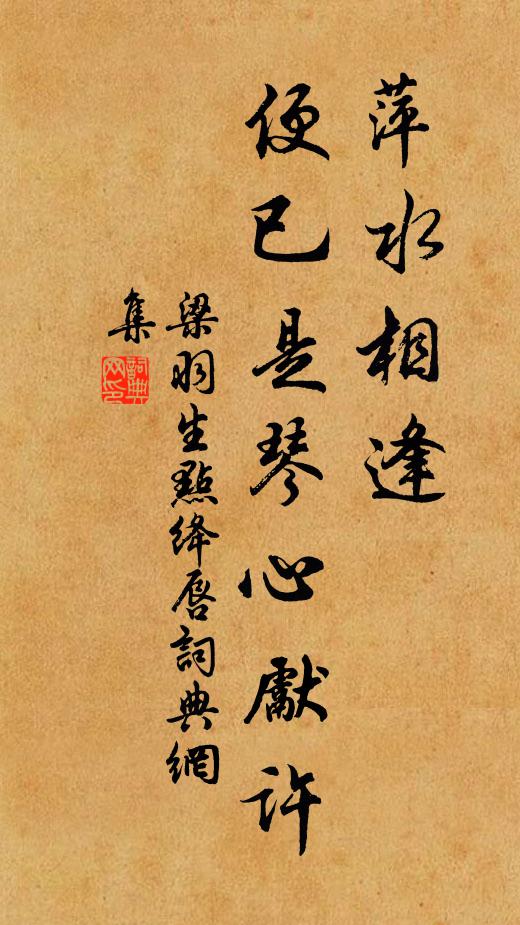 萍水相逢
便已是琴心獻許
梁羽生點絳唇詞典網
集
詞典网印